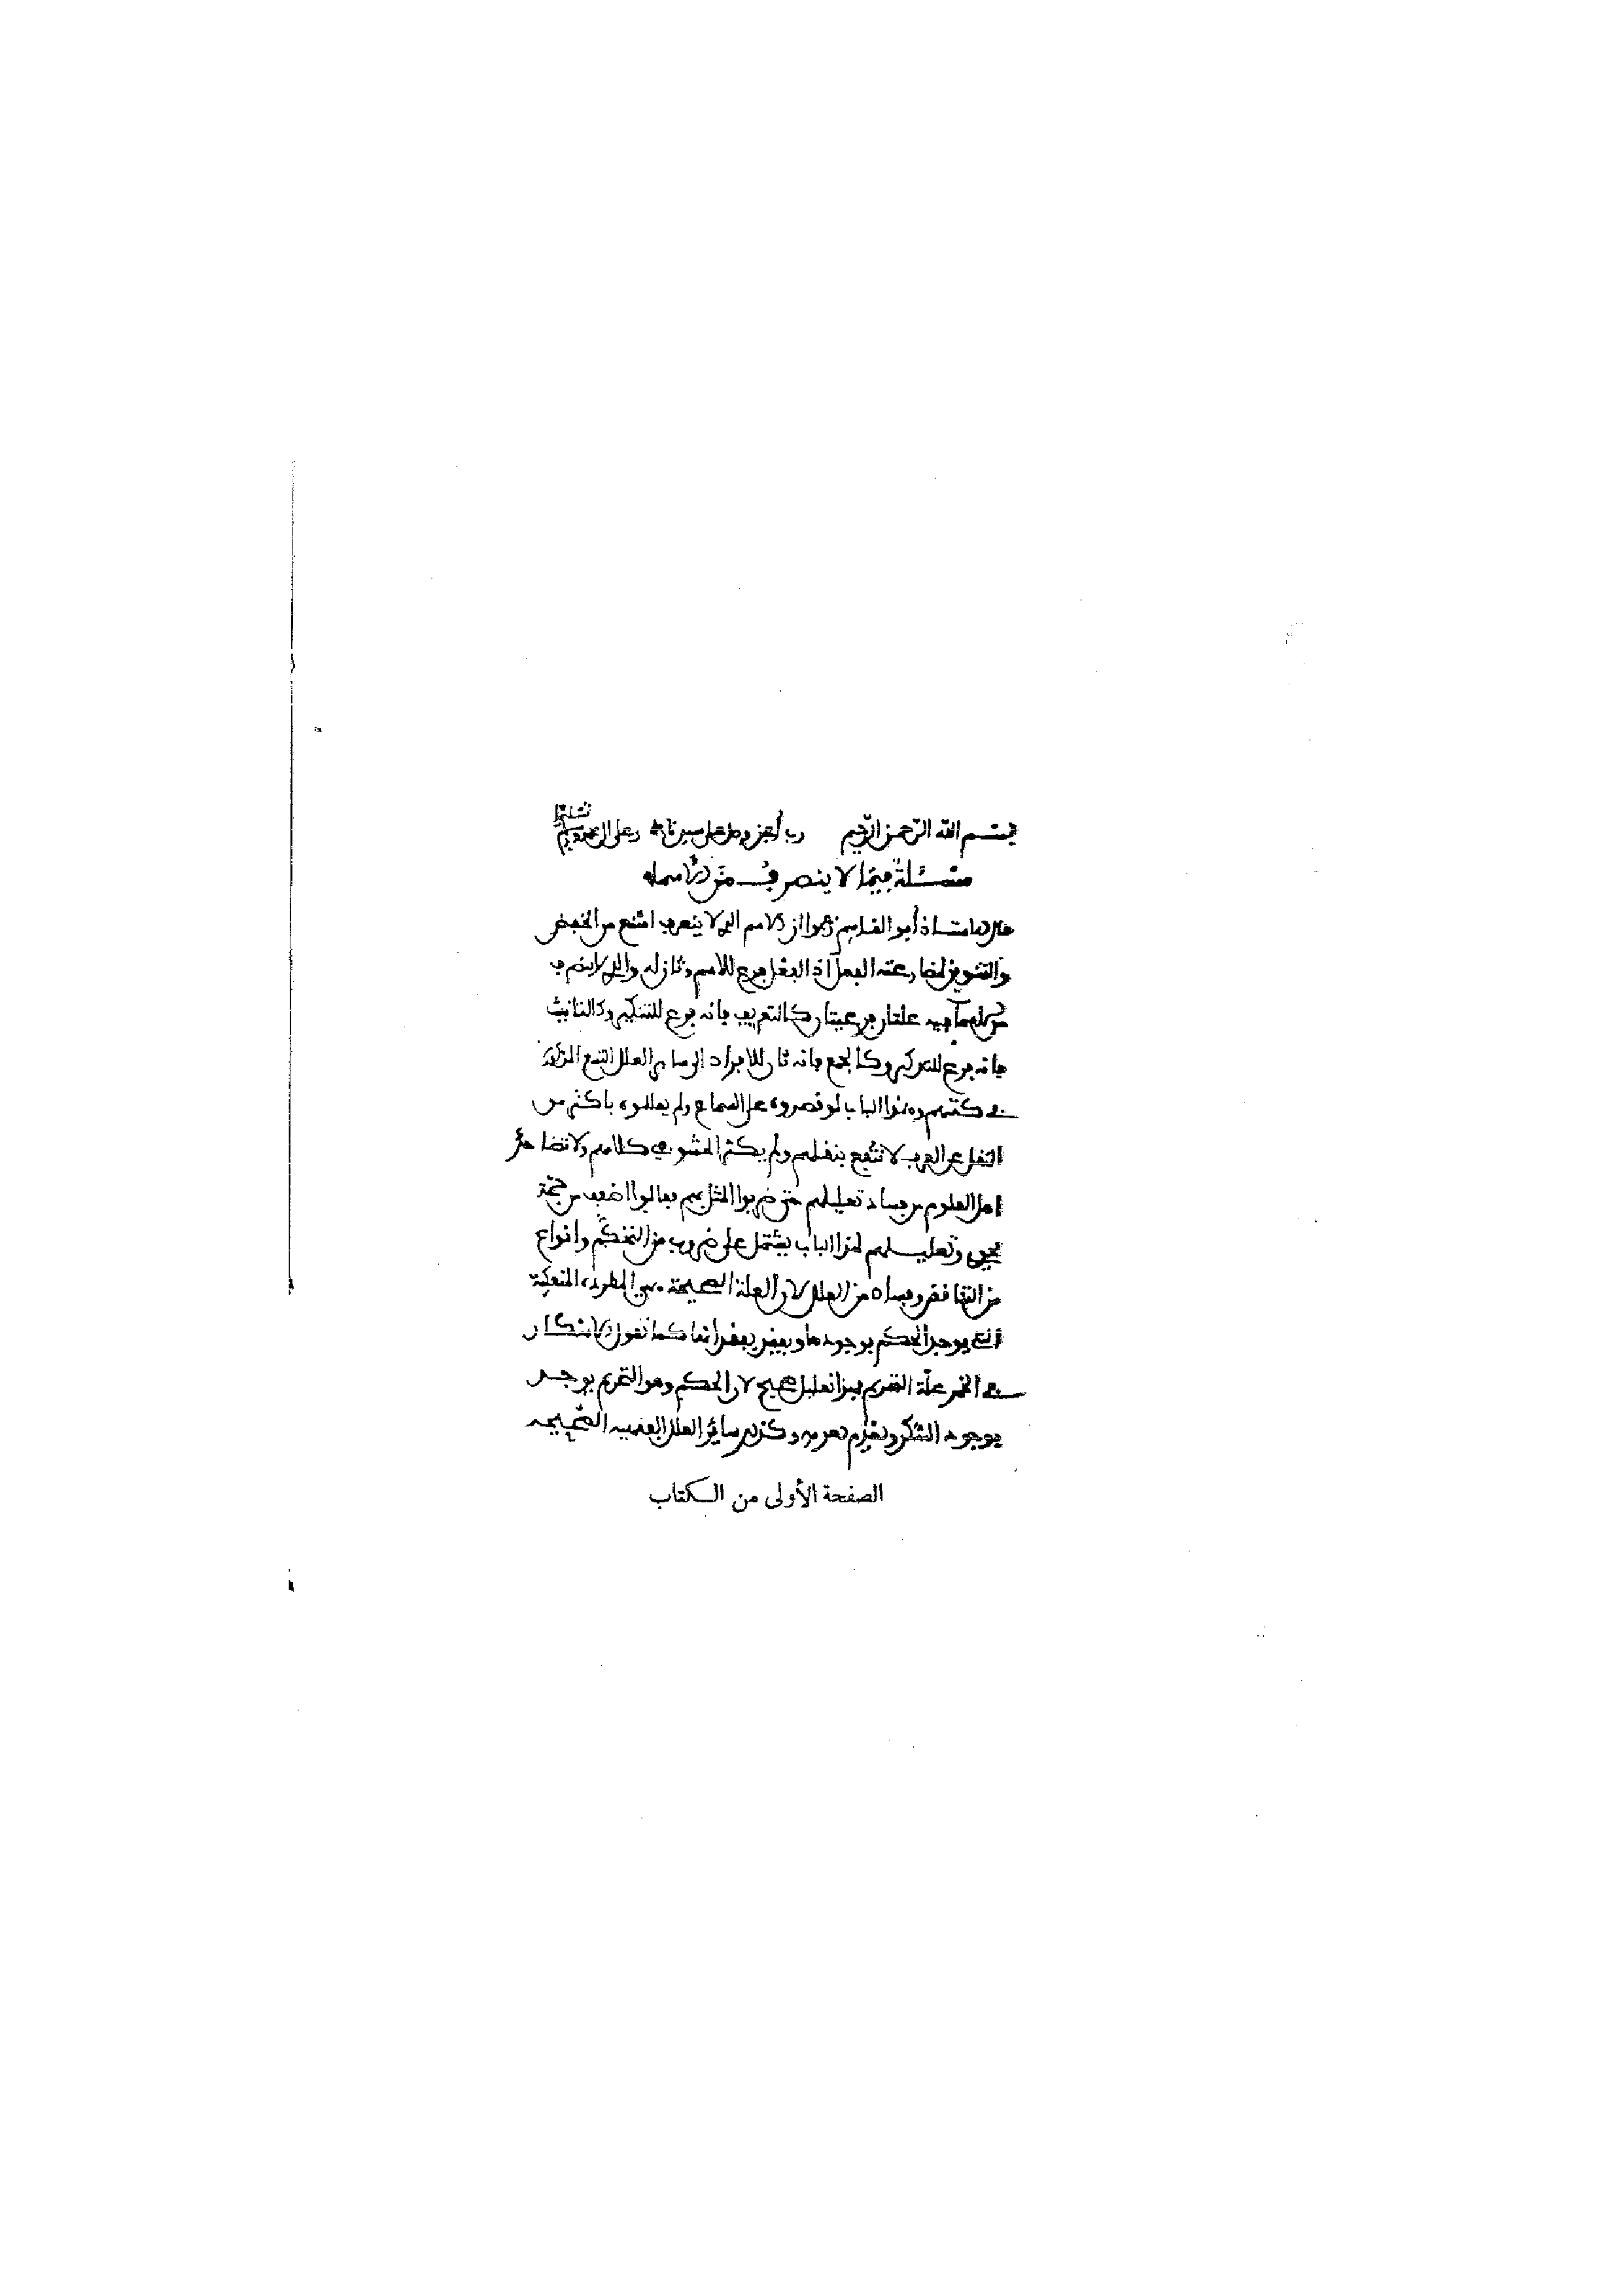 بسم الله الرحمن الرحيم رب أعن وصل على سيدنا محمد وعلى آل محمد وسلم تسليما
مسئلة فيما لا ينصرف من الأسماء
قال الأستاذ أبو القاسم زعموا أن الاسم الذي لا ينصرف امتنع من الخفض
والتنوين لمضارعته الفعل إذ الفعل فرع للاسم وثان له والذي لا ينصرف
من الأسماء فيه علتان فرعيتان كالتعريف فإنه فرع للتنكير وكالتانيث
فإنه فرع للتذكير وكالجمع فإنه ثان للافراد إلى سائر العلل التسع المذكورة
في كتبهم وهذا الباب لو قصروه على السماع ولم يعللوه بأكثر من
النقل عن العرب لانتفع بنقلهم ولم يكثر الحشو في كلامهم ولا تضاحك
أهل العلوم من فساد تعليلهم حتى ضربوا المثل بهم فقالوا أضعف من حجة
نحوي وتعليلهم لهذا الباب يشتمل على ضروب من التحكم وأنواع
من التناقض وفساد من العلل لأن العلة الصحيحة هي المطردة المنعكسة
التي يوجد الحكم بوجودها ويفقد بفقدانها كما تقول الإسكار
في الخمر علة التحريم فهذا تعليل صحيح لأن الحكم وهو التحريم يوجد
بوجود السكر ويعدم بعدمه وكذلك سائر العلل الفقهية الصحيحة
الصفحة الأولى من الكتاب